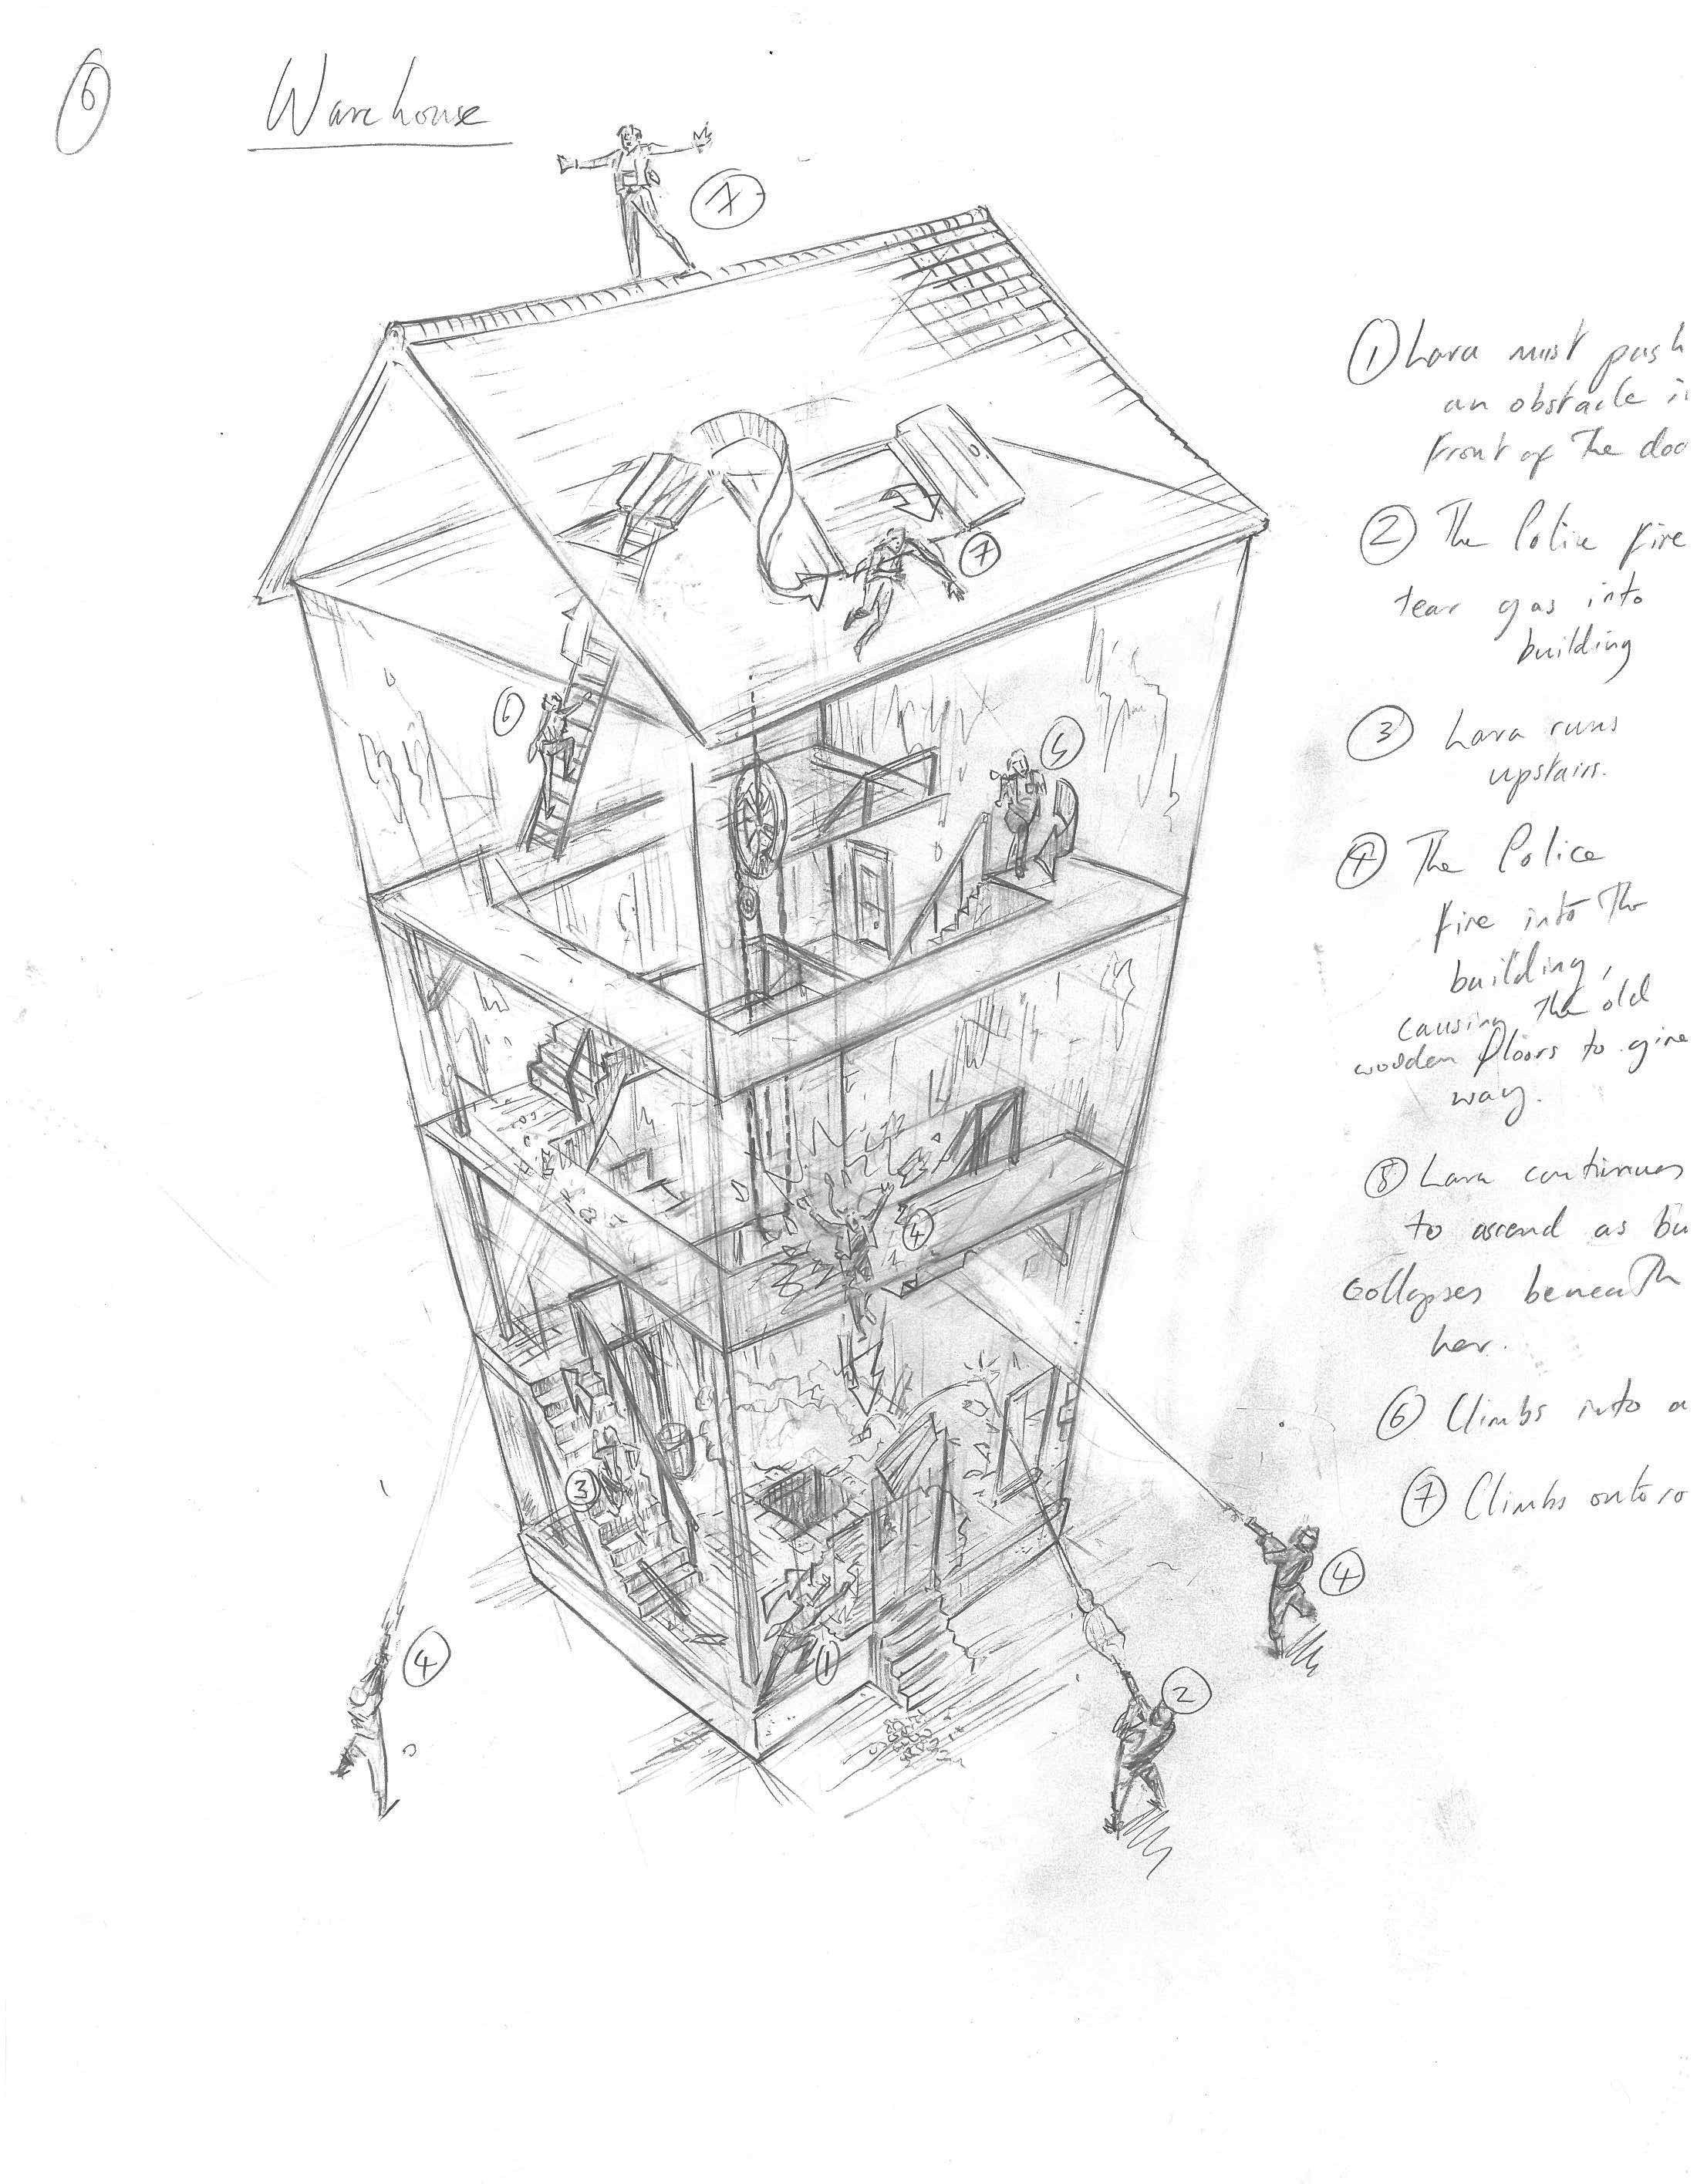 6
Warehouse
7
① Lara must push
an obstacle i
front of The doo
② The Police fire
tear gas into
building
③ Lara runs
upstairs.
④ The Police
fire into The
building,
causing The old
wooden floors to give
way.
⑤ Lara continues
to ascend as bu
collapses beneath
her.
⑥ Climbs into a
⑦ Climbs onto ro
7
6
5
4
3
1
4
4
2